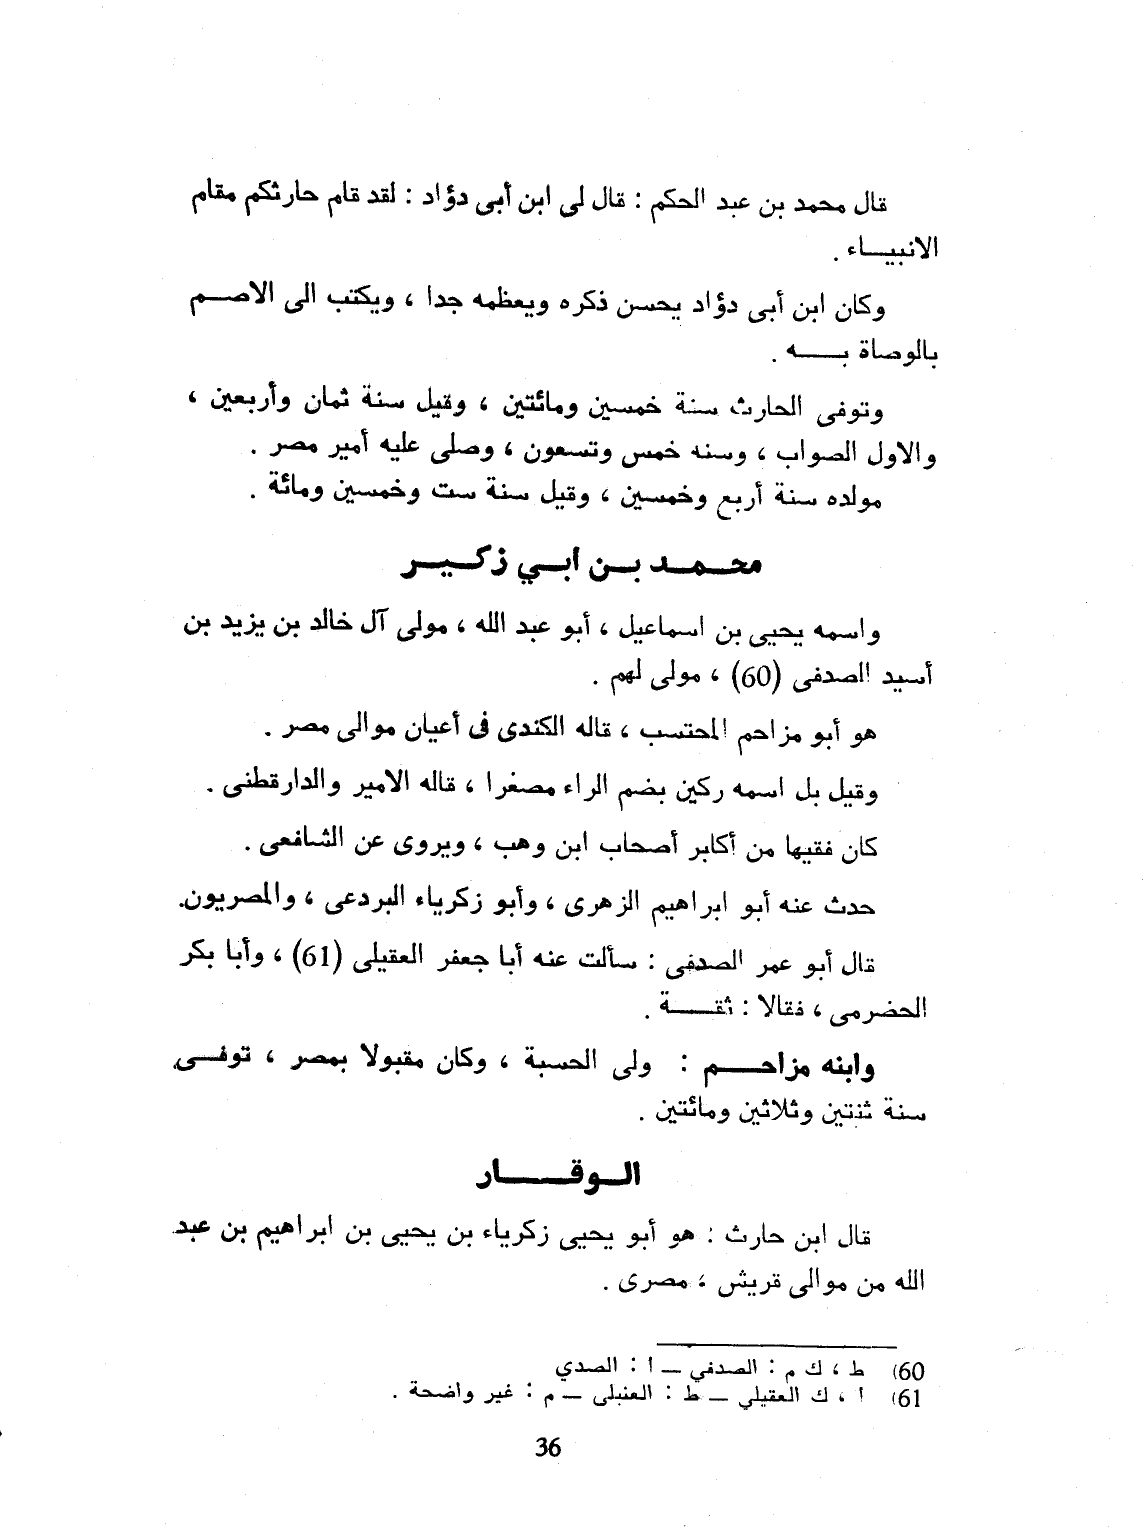 قال محمد بن عبد الحكم : قال لى ابن أبى دؤاد : لقد قام حارثكم مقام
الانبياء .
وكان ابن أبى دؤاد يحسن ذكره ويعظمه جدا ، ويكتب الى الاصم
بالوصاة به .
وتوفى الحارث سنة خمسين ومائتين ، وقيل سنة ثمان وأربعين ،
والاول الصواب ، وسنه خمس وتسعون ، وصلى عليه أمير مصر .
مولده سنة أربع وخمسين ، وقيل سنة ست وخمسين ومائة .
محمد بن ابي زكير
واسمه يحيى بن اسماعيل ، أبو عبد الله ، مولى آل خالد بن يزيد بن
أسيد الصدفى (60) ، مولى لهم .
هو أبو مزاحم المحتسب ، قاله الكندى فى أعيان موالى مصر .
وقيل بل اسمه ركين بضم الراء مصغرا ، قاله الامير والدارقطنى .
كان فقيها من أكابر أصحاب ابن وهب ، ويروى عن الشافعى .
حدث عنه أبو ابراهيم الزهرى ، وأبو زكرياء البردعى ، والمصريون.
قال أبو عمر الصدفى : سألت عنه أبا جعفر العقيلى (61) ، وأبا بكر
الحضرمى ، فقالا : ثقة .
وابنه مزاحم : ولى الحسبة ، وكان مقبولا بمصر ، توفى
سنة ثنتين وثلاثين ومائتين .
الوقار
قال ابن حارث : هو أبو يحيى زكرياء بن يحيى بن ابراهيم بن عبد
الله من موالى قريش ، مصرى .
60) ط ، ك م : الصدفي — ا : الصدي
61) ا ، ك العقيلي — ط : العنبلى — م : غير واضحة .
36